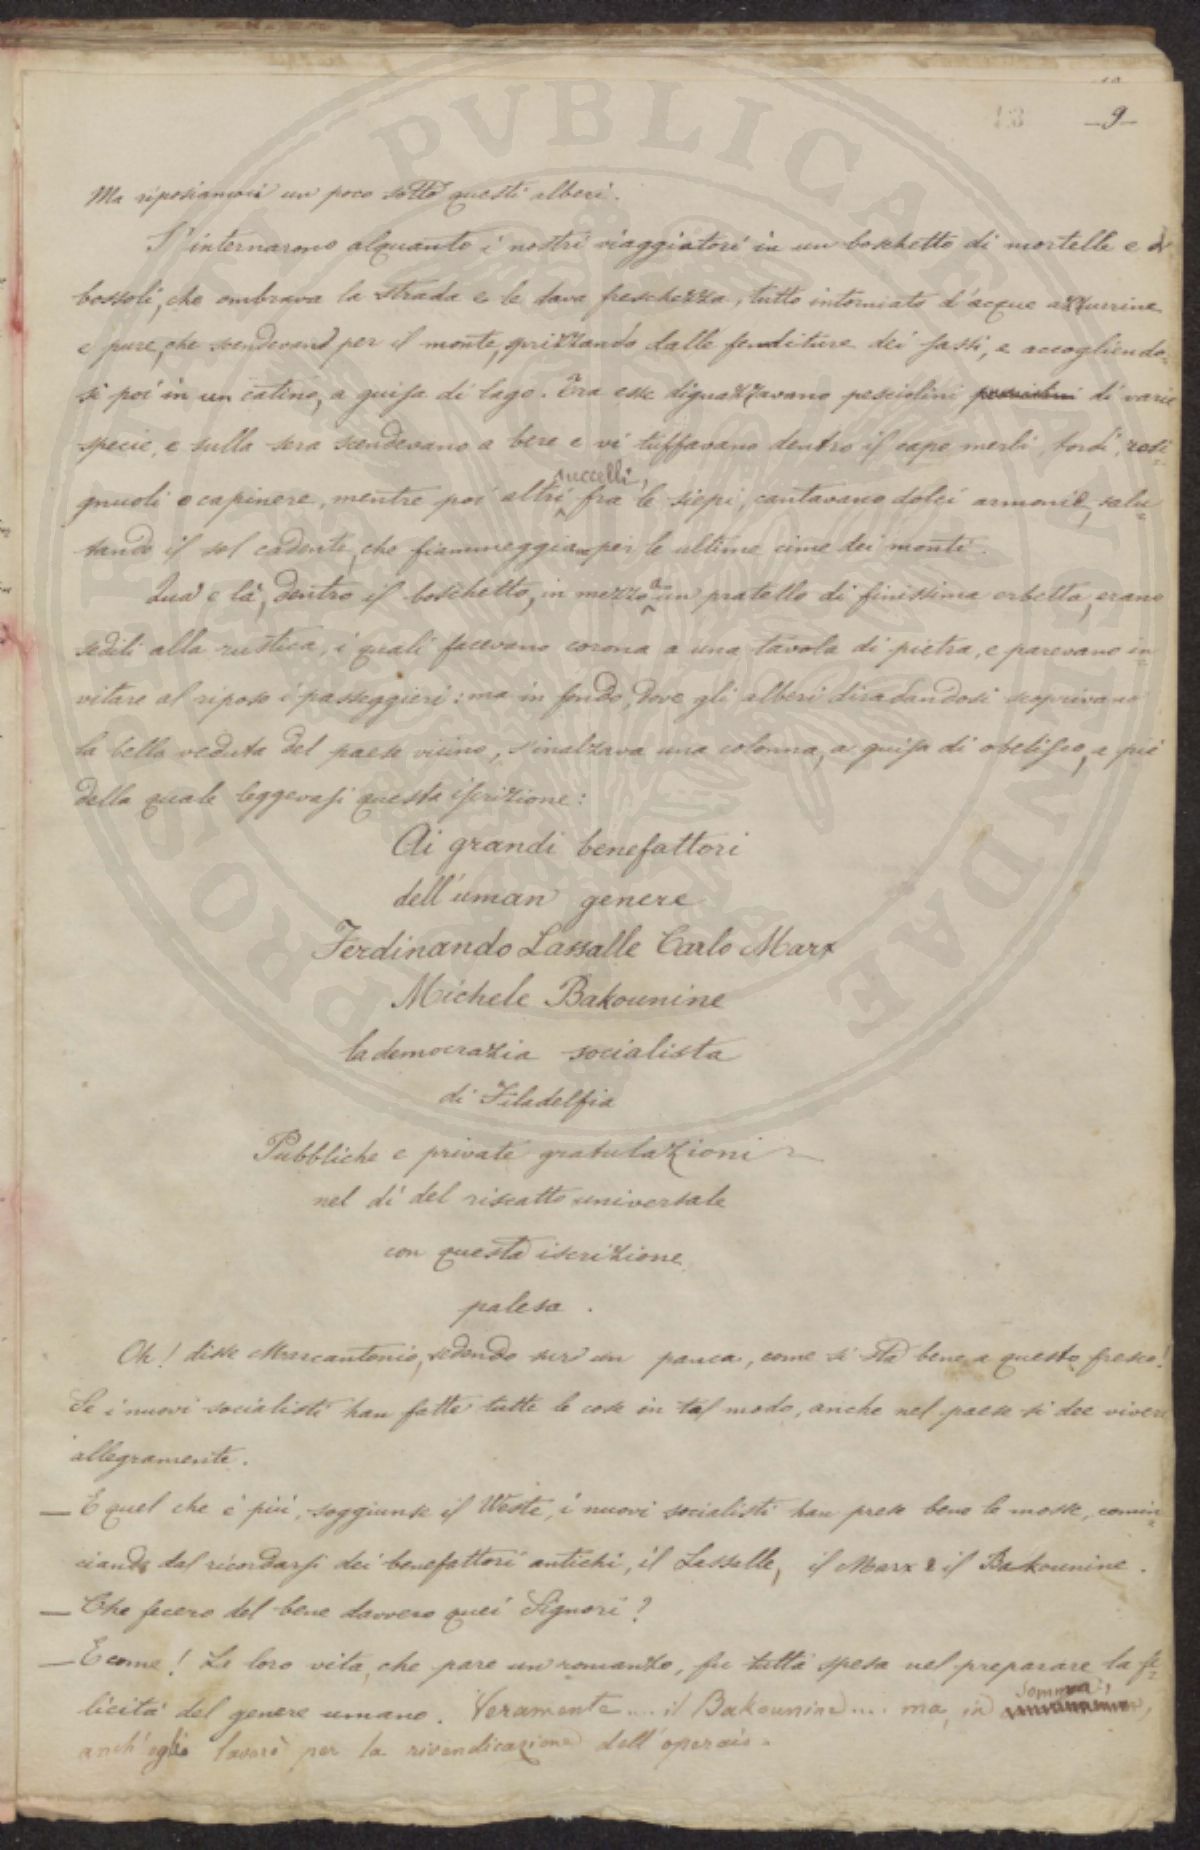 13 —9—
Ma riposiamoci un poco sotto questi alberi.
S'internarono alquanto i nostri viaggiatori in un boschetto di mortelle e di
bossoli, che ombrava la strada e le dava freschezza, tutto intorniato d'acque azzurrine
e pure, che scendevano per il monte, sprizzando dalle fenditure dei sassi, e accogliendo-
si poi in un catino, a guisa di lago. Tra esse diguazzavano pesciolini di varie
specie, e sulla sera scendevano a bere e vi tuffavano dentro il capo merli, tordi, rosi-
gnuoli e capinere, mentre poi altri uccelli, fra le siepi, cantavano dolci armonie, salu-
tando il sol cadente, che fiammeggiava per le ultime cime dei monti.
Quà e là, dentro il boschetto, in mezzo a un pratello di finissima erbetta, erano
sedili alla rustica, i quali facevano corona a una tavola di pietra, e parevano in-
vitare al riposo i passeggieri: ma in fondo, dove gli alberi diradandosi scoprivano
la bella veduta del paese vicino, s'inalzava una colonna, a guisa di obelisco, a piè
della quale leggevasi questa iscrizione:
Ai grandi benefattori
dell'uman genere
Ferdinando Lassalle Carlo Marx
Michele Bakounine
la democrazia socialista
di Filadelfia
Pubbliche e private gratulazioni
nel dì del riscatto universale
con questa iscrizione
palesa.
Oh! disse Marcantonio, sedendo sur un panca, come si sta bene a questo fresco!
Se i nuovi socialisti han fatte tutte le cose in tal modo, anche nel paese si dee vivere
allegramente.
— E quel che è più, soggiunse il Weste, i nuovi socialisti han prese bene le mosse, comin-
ciando dal ricordarsi dei benefattori antichi, il Lassalle, il Marx e il Bakounine.
— Che fecero del bene davvero quei Signori?
— E come! La loro vita, che pare un romanzo, fu tutta spesa nel preparare la fe-
licità del genere umano. Veramente... il Bakounine.... ma, in somma,
anch'egli lavorò per la rivendicazione dell'operaio.
PROSPERITATI PVBLICAE AVGENDAE